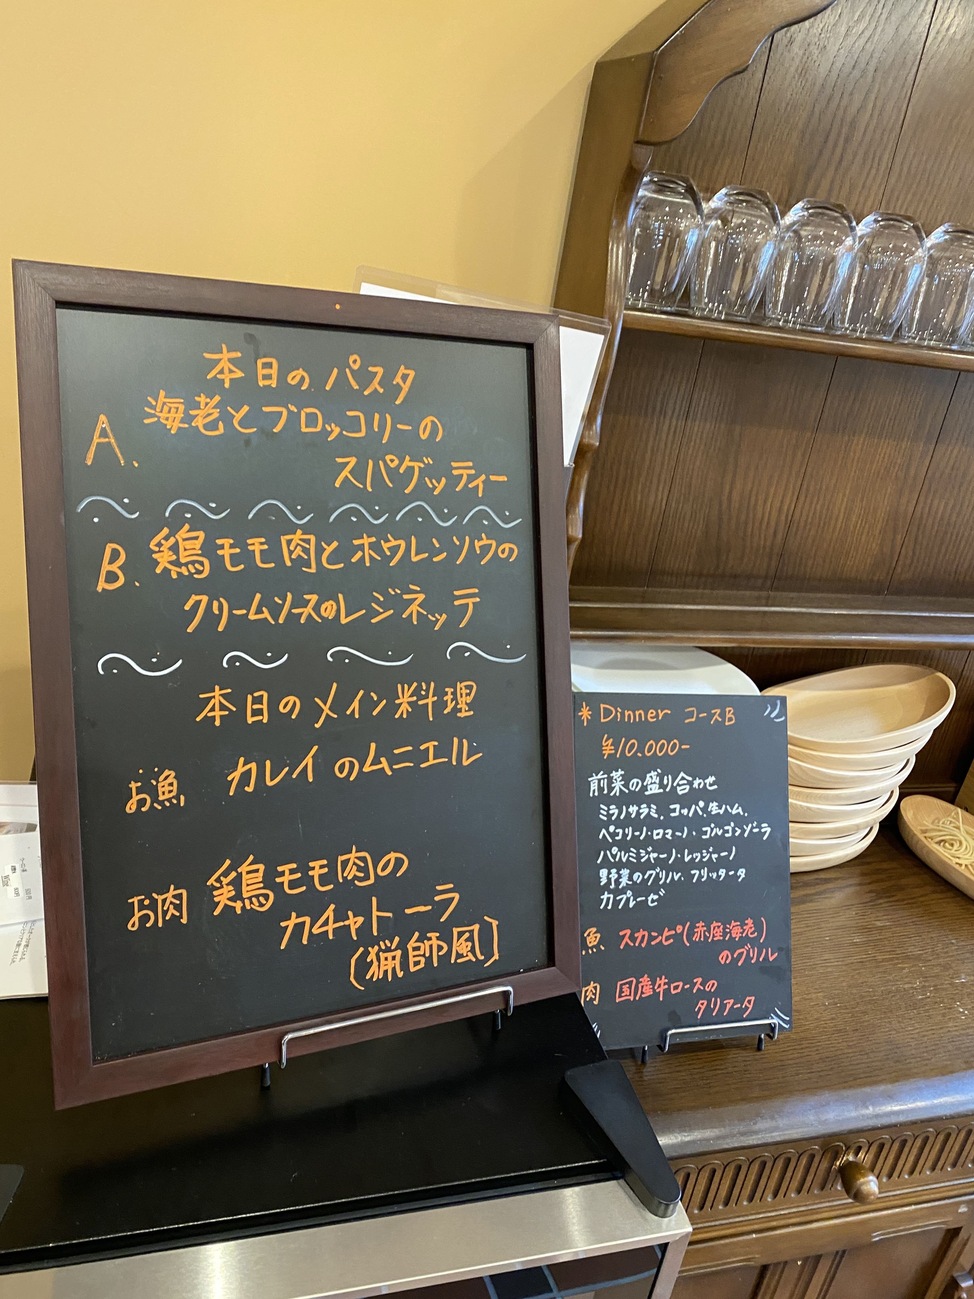 本日のパスタ
A. 海老とブロッコリーの
スパゲッティー
B. 鶏モモ肉とホウレンソウの
クリームソースのレジネッテ
本日のメイン料理
お魚 カレイのムニエル
お肉 鶏モモ肉の
カチャトーラ
(猟師風)
* Dinner コースB
¥10.000-
前菜の盛り合わせ
ミラノサラミ、コッパ、生ハム、
ペコリーノ・ロマーノ・ゴルゴンゾーラ
パルミジャーノ・レッジャーノ
野菜のグリル、フリッタータ
カプレーゼ
魚 スカンピ(赤座海老)
のグリル
肉 国産牛ロースの
タリアータ